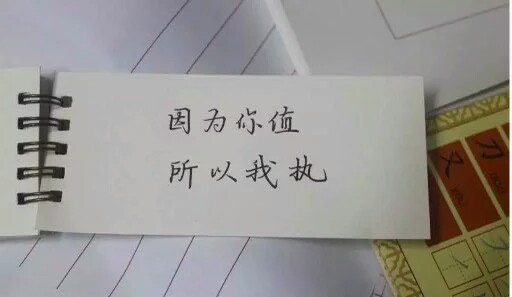 因为你值
所以我执
刀
又